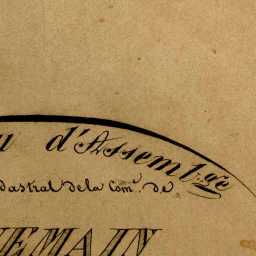 u d'Assemb.ge
dastral de la Com.e de
VEMAIN